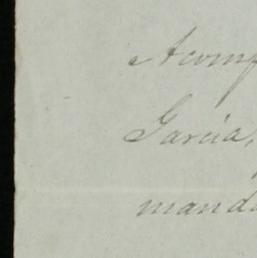 Acomp
García,
manda